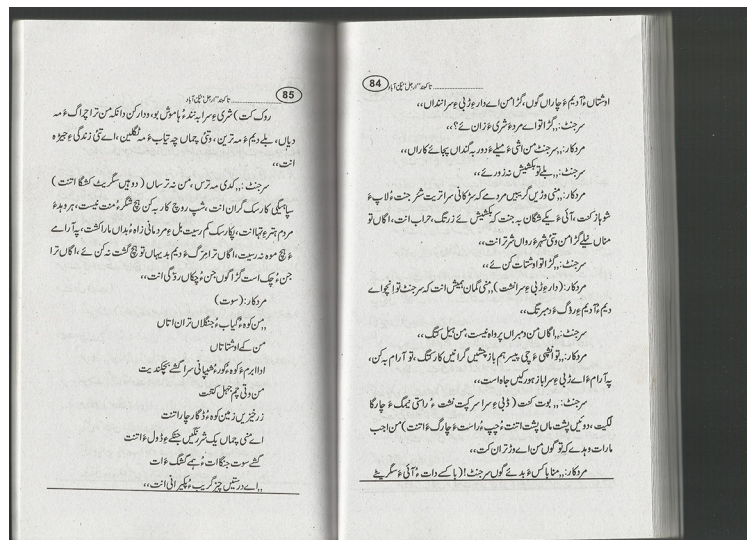 84
اوشتاں ءُ آدیم ءَ چاراں گوں، گڑا من اے دار ءِ ڈبی ءِ سرا نِنداں،،
سرجنٹ: ,,گڑا تو اے مرد ءَ شری ءَ زان ئے؟،،
مردکار: ,,سرجنٹ من اشی ءَ میلے ءَ دور بہ گنداں پجائے کاراں،،
سرجنٹ: ,,بلے تو بکشیش نہ زورئے،،
مردکار: ,,منی وڑیں گریبیں مردے کہ سڑکانی سرا تریت شئر جنت ءُ لاپ ءَ
شوہاز کنت، آئی ءَ یکے شگان بہ جنت کہ بکشیش ئے زرتگ، حراب انت، اگاں تو
مناں نیلے گڑا من وتی شہر ءَ رواں شر تر انت،،
سرجنٹ: ,,گڑا تو اوشتات کن ئے،،
مردکار: (دار ءِ ڈبی ءِ سرا نشت) ,,منی گمان ہمیش انت کہ سرجنٹ تو انچو اے
دیم ءُ آدیم ءِ روگ ءَ دمبرتگ،،
سرجنٹ: ,,اگاں من دمبراں پرواہ نیست، من ہیل کتگ،،
مردکار: ,,تو انچی ءَ چی پیسر ہم باز چشیں گرانیں کار کتگ، تو آرام بہ کن،
پہ آرام ءَ اے ڈبی ءِ سرا باز ہورکیں جاہ است،،
سرجنٹ: ,,بوت کنت (ڈبی ءِ سرا سر کپت نشت ءُ راستی نیمگ ءَ چارگا
لگیت، دوئیں پشت ماں پشت اتنت ءُ چپ ءُ راست ءَ چارگ ءَ اتنت) من اجب
مارات وہدے کہ تو گوں من اے وڑ تران کت،،
مردکار: ,,منا باکس ءَ بدئے گوں سرجنٹ! (باکسے دات ءُ آئی ءَ سگریٹے
85
روک کت) شری ءِ سرا بہ نند ءُ ہاموش بو، ودار کن دانکہ من ترا چراگ ءَ مہ
دیاں، بلے دیم ءَ مہ ترین، وتی چماں چہ تیاب ءَ مہ نگلین، اے تئی زندگی ءِ جیڑہ
انت،،
سرجنٹ: ,,کدی مہ ترس، من نہ ترساں (دوہیں سگریٹ کشگا اتنت)
سپاہیگی کار سک گران انت، شپ روچ کار بہ کن ہچ شگر ءُ منت نیست، ہر وہد ءَ
مردم ہنر ءِ تہا انت، پکار سک کم رسیت بل ءِ مردمانی زاہ ءُ بداں مارا کشت، پہ آرامے
ءَ ہچ موہ نہ رسیت، اگاں ترا مرگ ءَ دیم بدیہاں تو ہچ گشت نہ کن ئے، اگاں ترا
جن ءُ چک است گڑا گوں جن ءُ چکاں ردگی انت،،
مردکار: (سوت)
,,من کوہ ءُ گیاب ءُ جنگلاں تران اتاں
من کے اوشتاتاں
اوا ابرم ءَ کوہ ءُ کور ءُ شنپانی سرا گشے بچکندیت
من وتی چم جہل کتنت
زرخیزیں زمین کوہ ءُ ڈگار چاراتنت
اے منی چماں یک شررنگیں جنکے ءِ ڈول ءَ اتنت
گشے سوت جنگا ات ءُ ہمے گشگ ءَ ات
,,اے درستیں چیز گریب ءُ پکیرانی انت،،